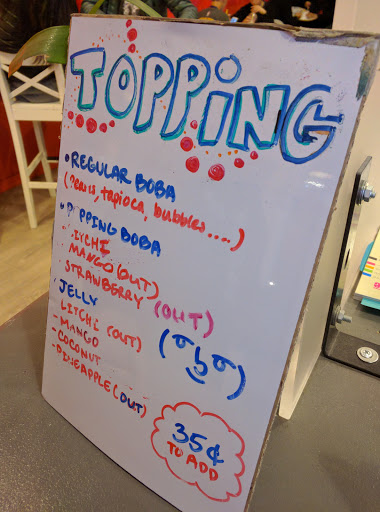 TOPPING
• REGULAR BOBA
(Pearls, tapioca, bubbles....)
• PPING BOBA
IYCHI
MANGO (OUT)
STRAWBERRY (OUT)
• JELLY
LITCHI (OUT)
- MANGO
- COCONUT
- PINEAPPLE (OUT)
35¢
TO ADD